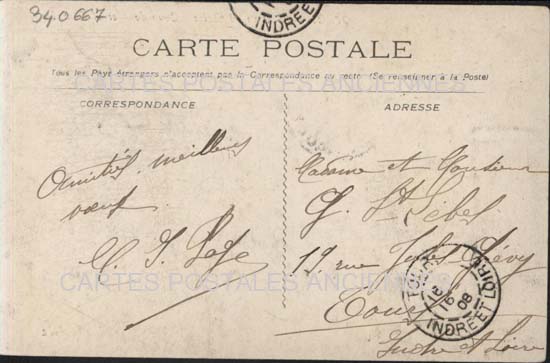 340667
INDRE-E
CARTE POSTALE
Tous les Pays étrangers n'acceptent pas la Correspondance au recto (Se renseigner à la Poste)
CARTES POSTALES ANCIENNES
CORRESPONDANCE
ADRESSE
Amitiés, meilleurs
vœux
Madame et Monsieur
G.
19 rue Jules Grévy
CARTES POSTALES ANCIENNES
16
08
INDRE-ET-LOIRE
Tours
Indre et Loire